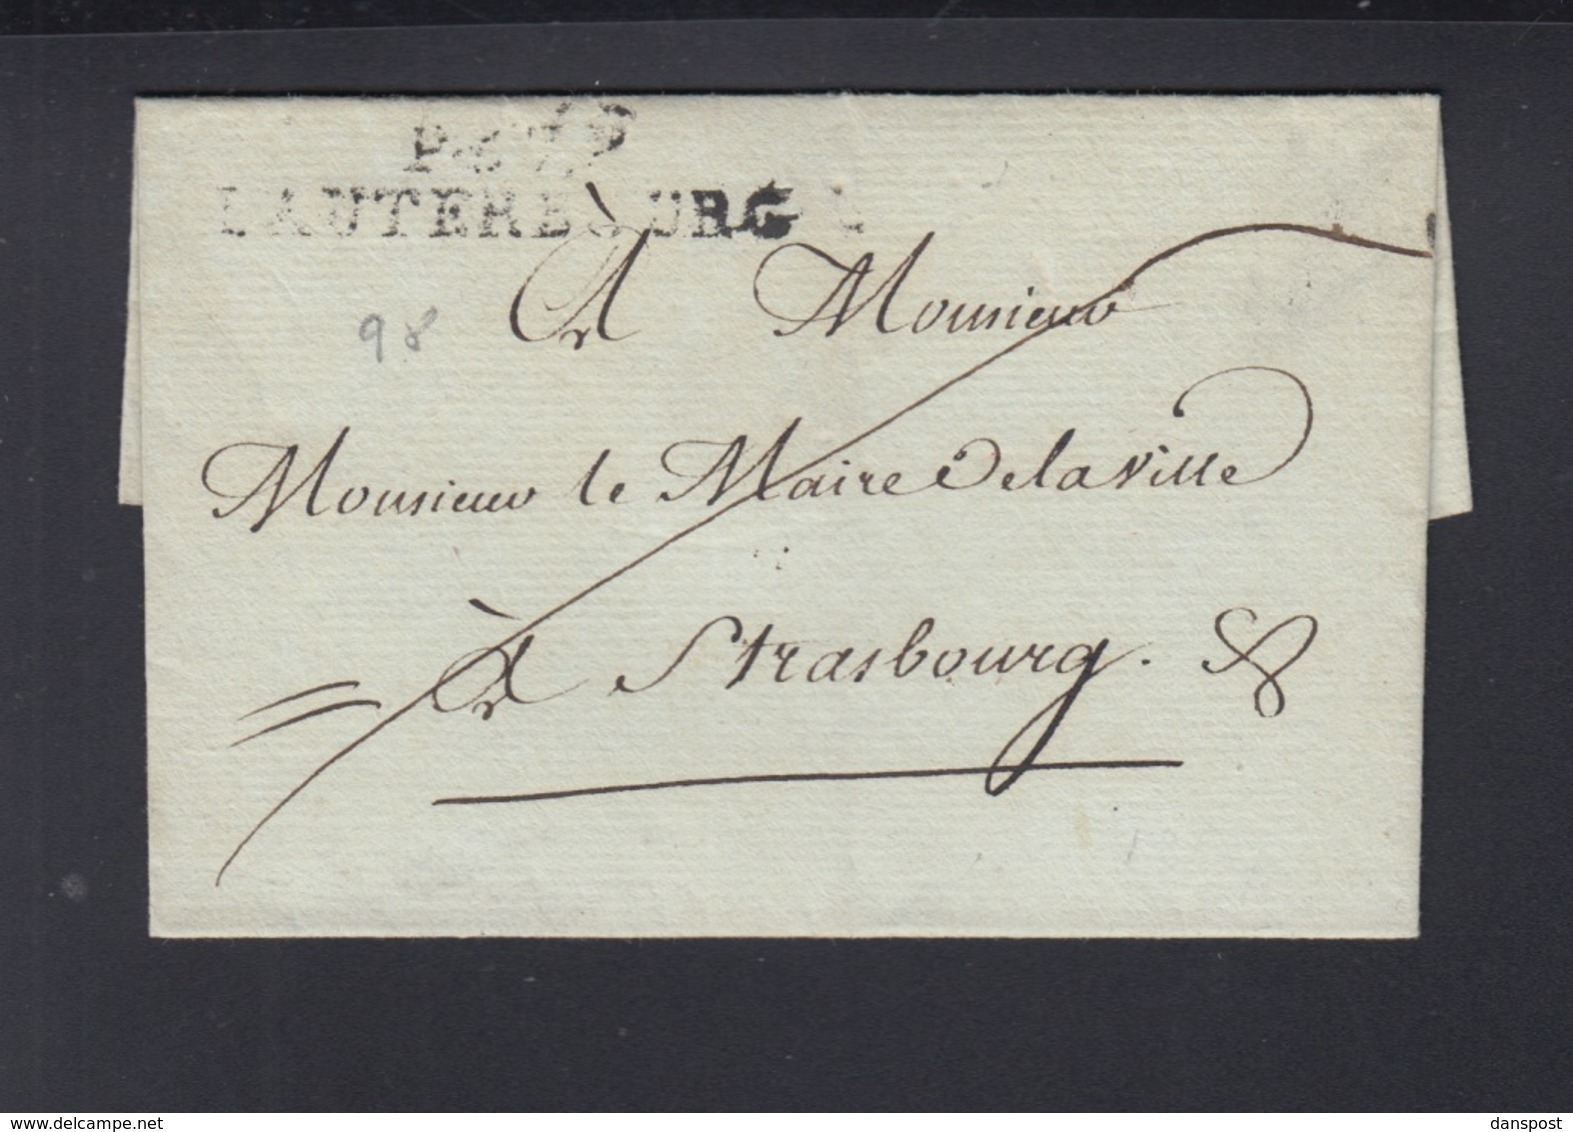 LAUTERBOURG
98
À Monsieur
Monsieur le Maire de la ville
à Strasbourg.
www.delcampe.net
danspost